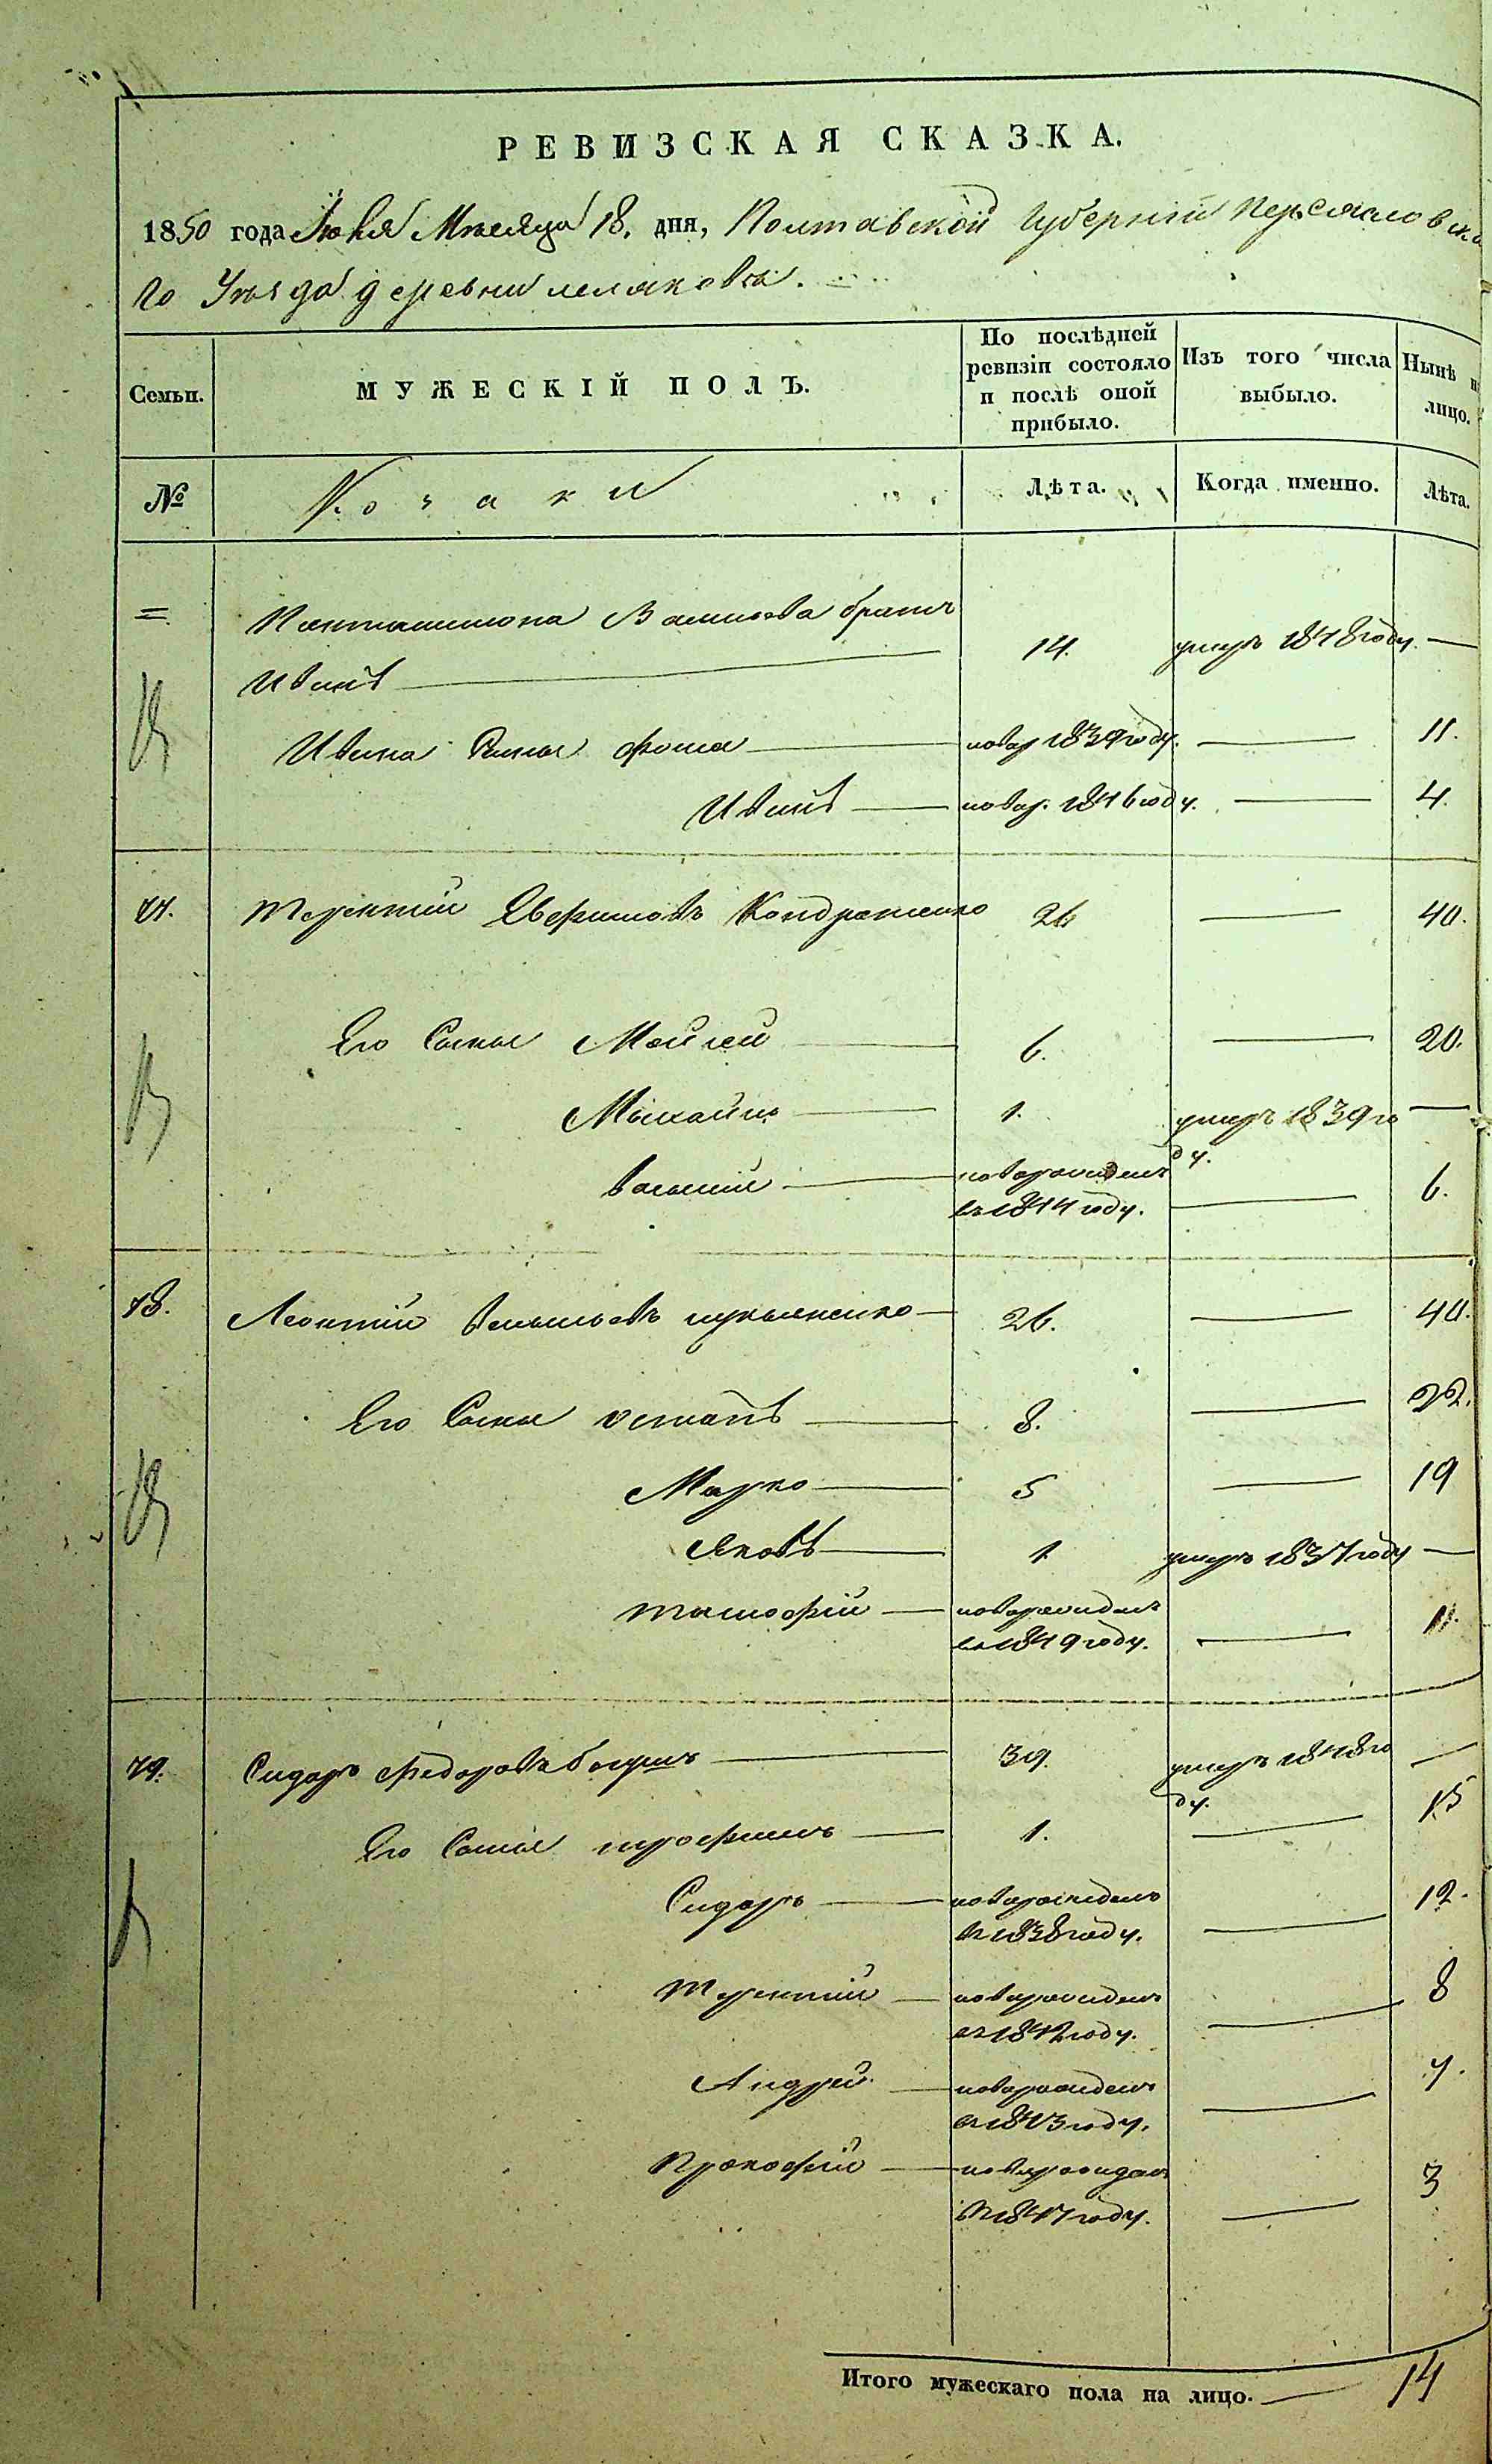 РЕВИЗСКАЯ СКАЗКА.
1850 года Июня Месяца 18. дня, Полтавской Губернии Переясловска
го Уезда деревни
Семьи.
МУЖЕСКІЙ ПОЛЪ.
По послѣдней
ревизіи состояло
и послѣ оной
прибыло.
Изъ того числа
выбыло.
Нынѣ на
лицо.
№
Козаки
Лѣта.
Когда именно.
Лѣта.
=
Пантилимона братъ
Иванъ
14.
умеръ 1848 году.
Ивана Сыны Фома
новор 1839 году.
11.
Иванъ
новор. 1846 году.
4.
Терентій Евфимовъ Кондратенко
26
40.
Его Сыны Мойсей
6.
20.
Михайло
1.
умеръ 1839 го
ду.
Василій
новорожденъ
въ 1844 году.
6.
78.
Леонтій Васильевъ Лукьяненко
26.
40.
Его Сыны Остапъ
8.
22.
Марко
5
19
Яковъ
1
умеръ 1837 году
Тимофій
новорожденъ
въ 1849 году.
79.
Сидоръ Федоровъ
39.
умеръ 1848 го
ду.
Его Сыны Трофимъ
1.
15
Сидоръ
новорожденъ
въ 1838 году.
12.
Терентій
новорожденъ
въ 1842 году.
8
Андрей
новорожденъ
въ 1843 году.
7.
Прокофій
новорожденъ
въ 1847 году.
3
Итого мужескаго пола на лицо.
14